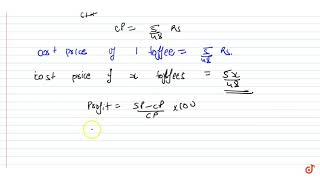 CP = 5/48 Rs
cost price of 1 toffee = 5/48 Rs.
cost price of x toffees = 5x/48
Profit = SP-CP/CP ×100